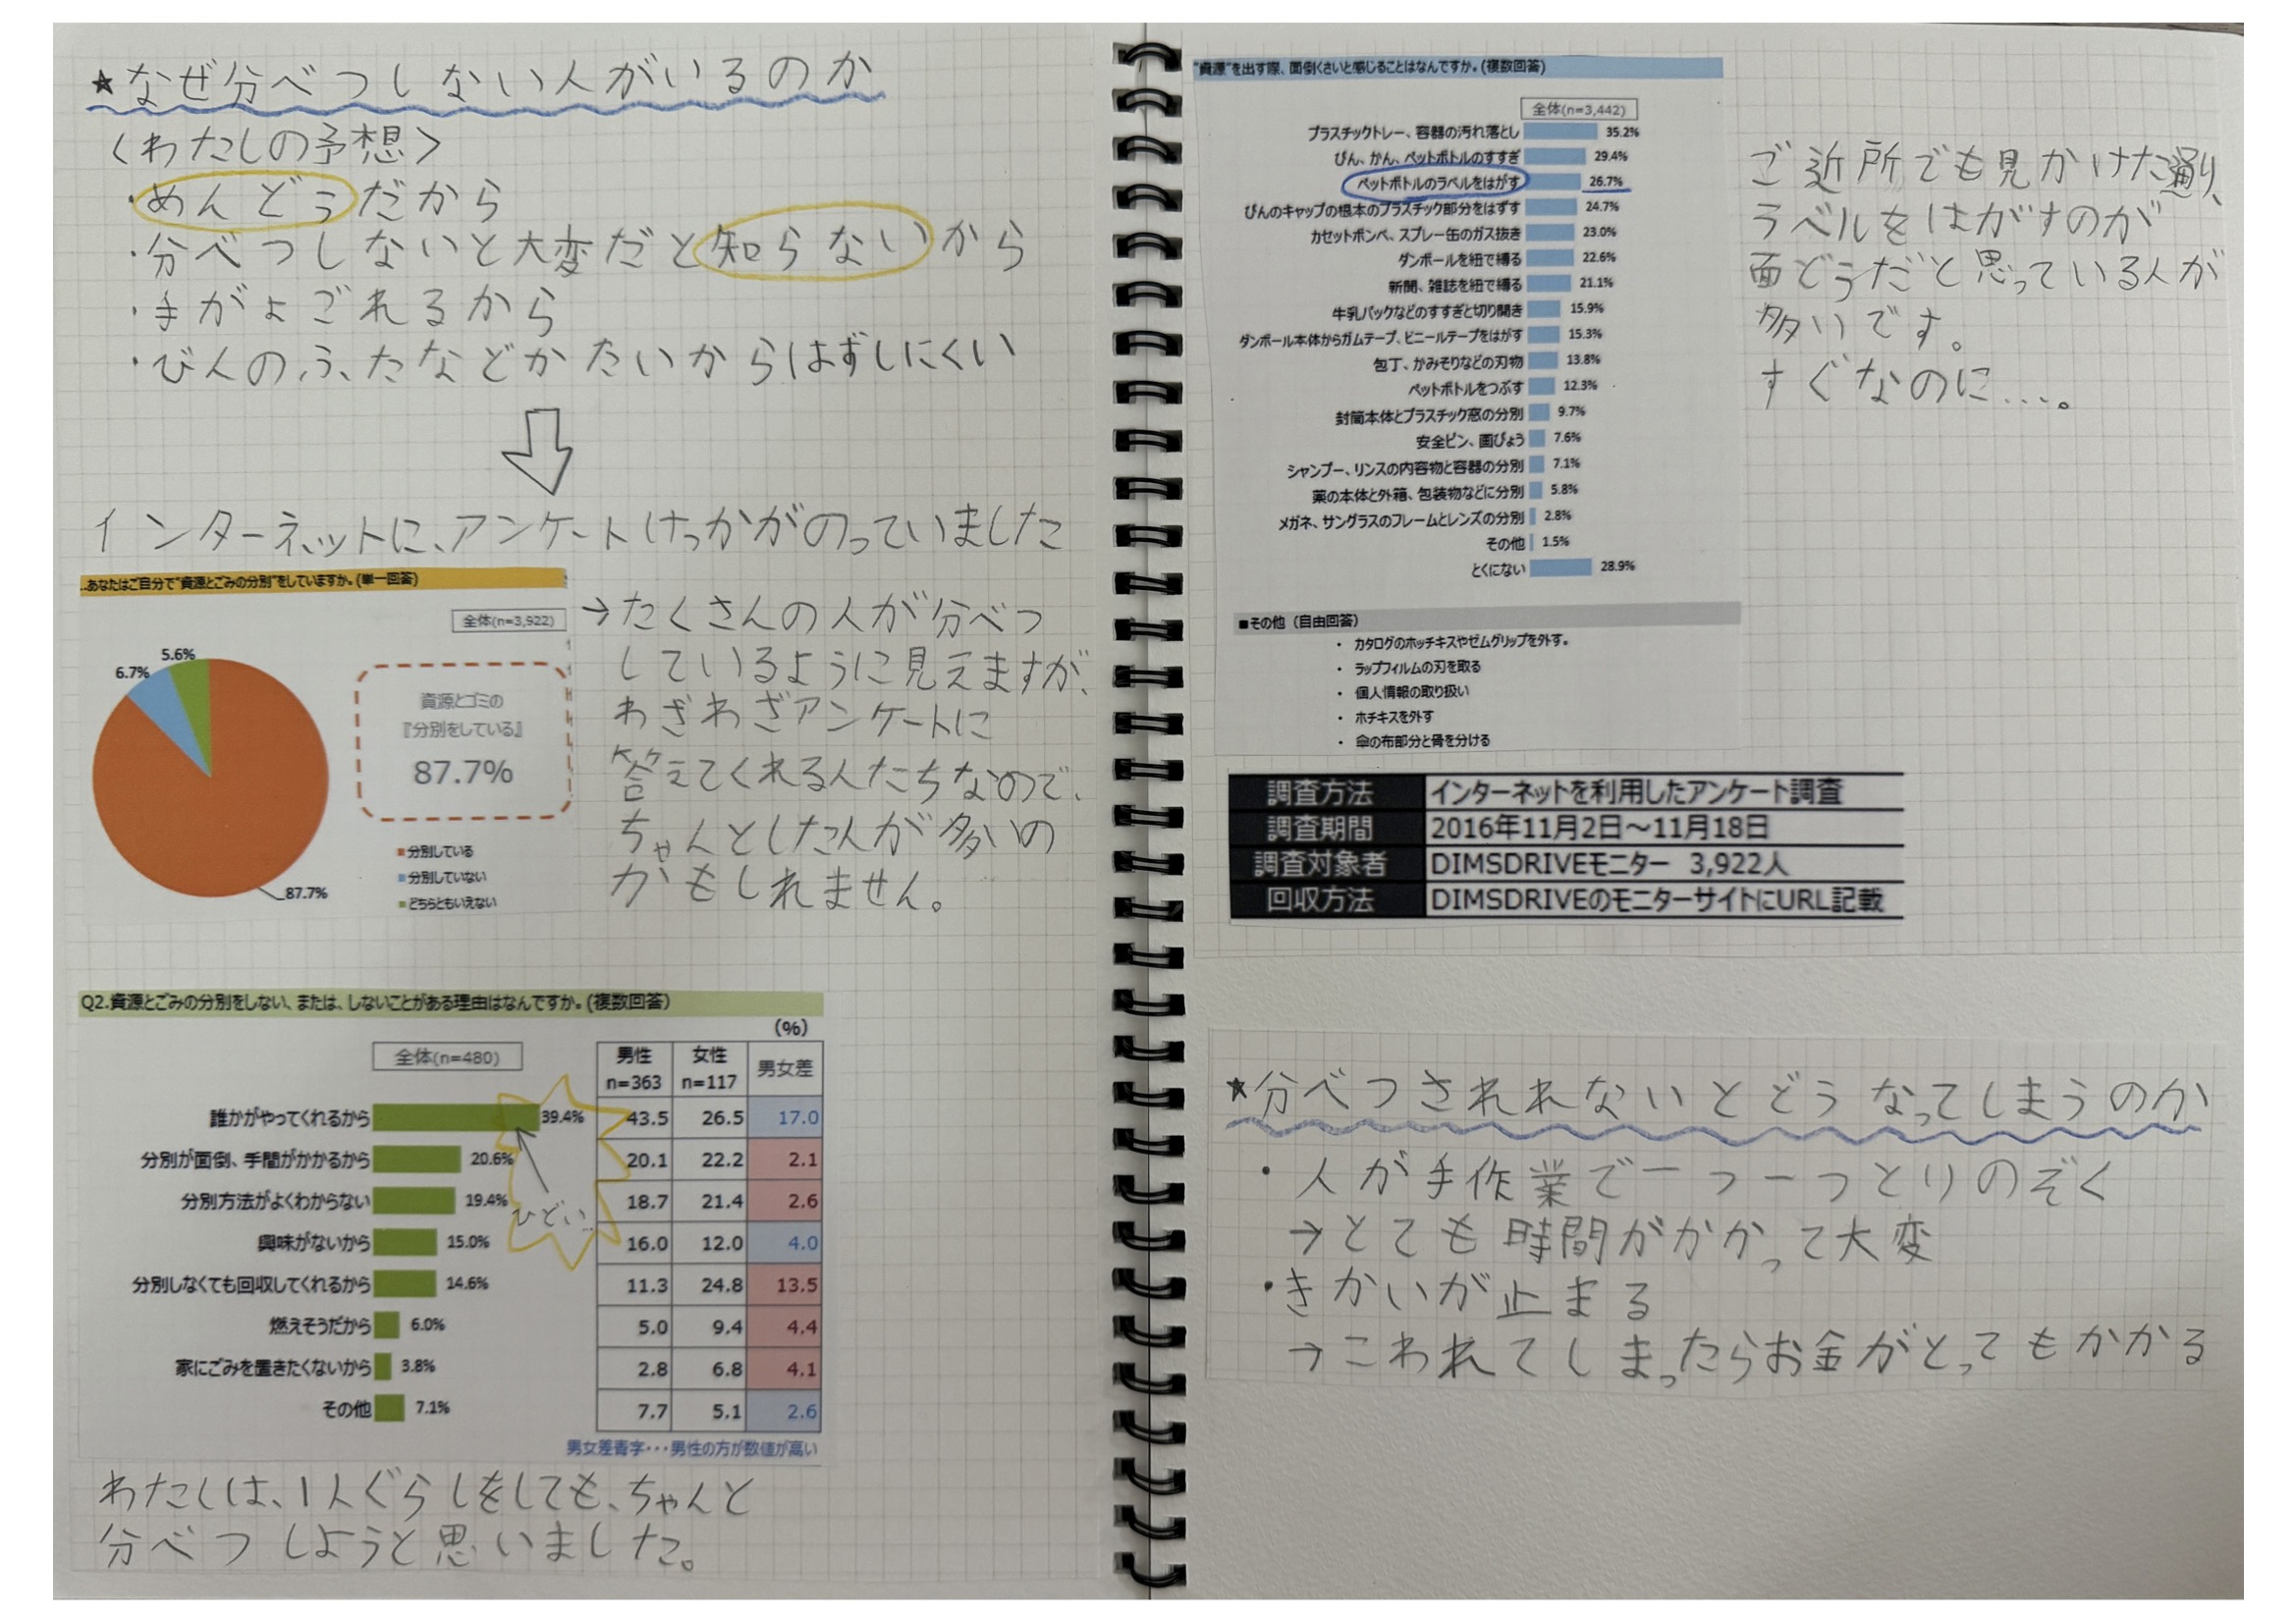 ★なぜ分べつしない人がいるのか
〈わたしの予想〉
・めんどうだから
・分べつしないと大変だと知らないから
・手がよごれるから
・びんのふたなどかたいからはずしにくい
インターネットに、アンケートけっかがのっていました
..あなたはご自分で"資源とごみの分別"をしていますか。(単一回答)
全体(n=3,922)
5.6%
6.7%
資源とゴミの
『分別をしている』
87.7%
■分別している
■分別していない
■どちらともいえない
87.7%
→たくさんの人が分べつ
しているように見えますが、
わざわざアンケートに
答えてくれる人たちなので、
ちゃんとした人が多いの
かもしれません。
Q2.資源とごみの分別をしない、または、しないことがある理由はなんですか。(複数回答)
(%)
全体(n=480) 男性 n=363 女性 n=117 男女差
誰かがやってくれるから 39.4% 43.5 26.5 17.0
分別が面倒、手間がかかるから 20.6% 20.1 22.2 2.1
分別方法がよくわからない 19.4% 18.7 21.4 2.6
ひどい…
興味がないから 15.0% 16.0 12.0 4.0
分別しなくても回収してくれるから 14.6% 11.3 24.8 13.5
燃えそうだから 6.0% 5.0 9.4 4.4
家にごみを置きたくないから 3.8% 2.8 6.8 4.1
その他 7.1% 7.7 5.1 2.6
男女差青字・・・男性の方が数値が高い
わたしは、1人ぐらしをしても、ちゃんと
分べつしようと思いました。
"資源"を出す際、面倒くさいと感じることはなんですか。(複数回答)
全体(n=3,442)
プラスチックトレー、容器の汚れ落とし 35.2%
びん、かん、ペットボトルのすすぎ 29.4%
ペットボトルのラベルをはがす 26.7%
びんのキャップの根本のプラスチック部分をはずす 24.7%
カセットボンベ、スプレー缶のガス抜き 23.0%
ダンボールを紐で縛る 22.6%
新聞、雑誌を紐で縛る 21.1%
牛乳パックなどのすすぎと切り開き 15.9%
ダンボール本体からガムテープ、ビニールテープをはがす 15.3%
包丁、かみそりなどの刃物 13.8%
ペットボトルをつぶす 12.3%
封筒本体とプラスチック窓の分別 9.7%
安全ピン、画びょう 7.6%
シャンプー、リンスの内容物と容器の分別 7.1%
薬の本体と外箱、包装物などに分別 5.8%
メガネ、サングラスのフレームとレンズの分別 2.8%
その他 1.5%
とくにない 28.9%
■その他（自由回答）
・ カタログのホッチキスやゼムグリップを外す。
・ ラップフィルムの刃を取る
・ 個人情報の取り扱い
・ ホチキスを外す
・ 傘の布部分と骨を分ける
ご近所でも見かけた通り、
ラベルをはがすのが
面どうだと思っている人が
多いです。
すぐなのに…。
調査方法 インターネットを利用したアンケート調査
調査期間 2016年11月2日～11月18日
調査対象者 DIMSDRIVEモニター 3,922人
回収方法 DIMSDRIVEのモニターサイトにURL記載
★分べつされれないとどうなってしまうのか
・人が手作業で一つ一つとりのぞく
→とても時間がかかって大変
・きかいが止まる
→こわれてしまったらお金がとってもかかる